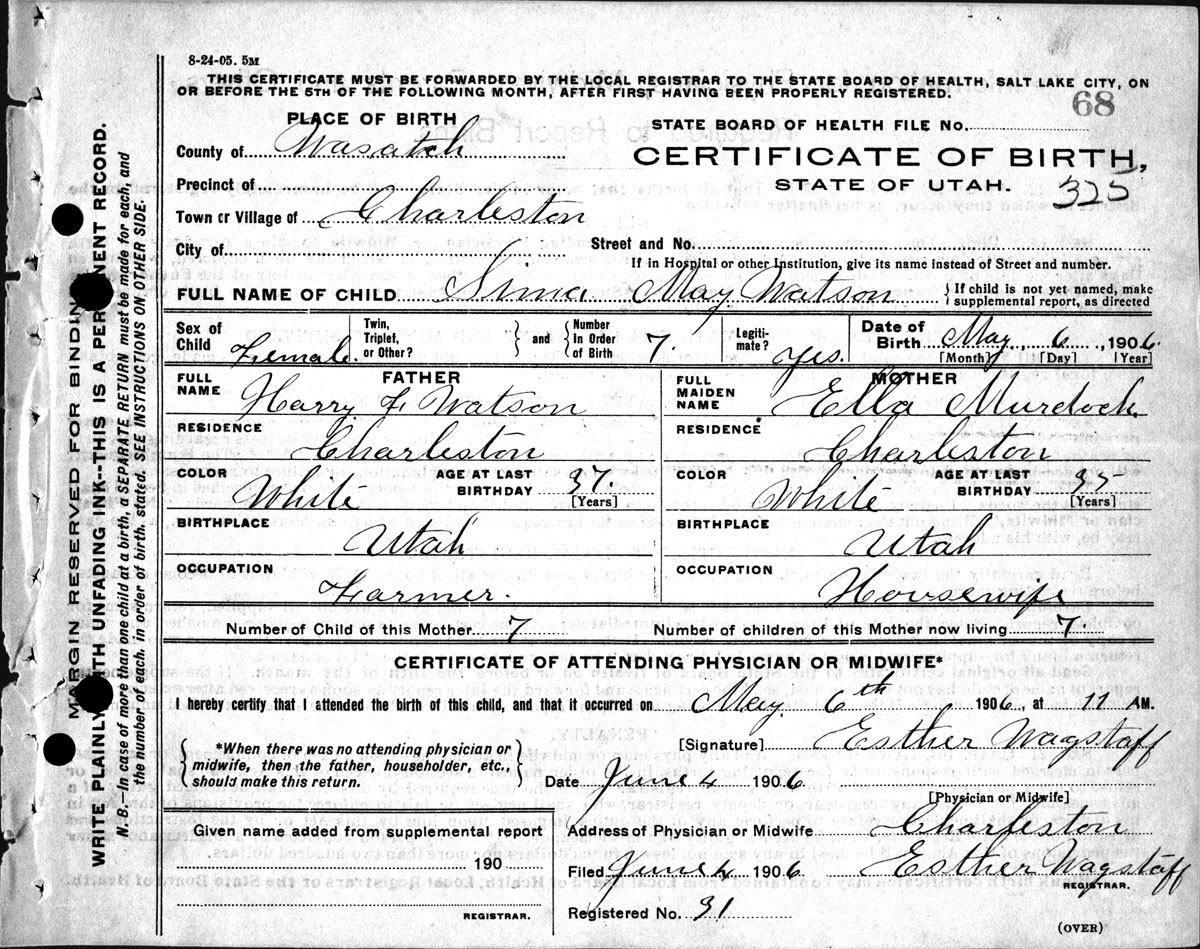 8-24-05. 5M
THIS CERTIFICATE MUST BE FORWARDED BY THE LOCAL REGISTRAR TO THE STATE BOARD OF HEALTH, SALT LAKE CITY, ON
OR BEFORE THE 5TH OF THE FOLLOWING MONTH, AFTER FIRST HAVING BEEN PROPERLY REGISTERED.
68
PLACE OF BIRTH
STATE BOARD OF HEALTH FILE No.
County of Wasatch
CERTIFICATE OF BIRTH,
Precinct of
STATE OF UTAH. 325
Town or Village of Charleston
City of
Street and No.
If in Hospital or other Institution, give its name instead of Street and number.
FULL NAME OF CHILD May Watson
If child is not yet named, make
supplemental report, as directed
Sex of Child Female. Twin, Triplet, or Other? and Number In Order of Birth 7 Legiti-mate? Yes. Date of Birth May 6, 1906.
[Month] [Day] [Year]
FATHER MOTHER
FULL NAME Harry F Watson FULL MAIDEN NAME Ella Murdock
RESIDENCE Charleston RESIDENCE Charleston
COLOR White AGE AT LAST BIRTHDAY 37. [Years] COLOR White AGE AT LAST BIRTHDAY 35 [Years]
BIRTHPLACE Utah BIRTHPLACE Utah
OCCUPATION Farmer. OCCUPATION Housewife
Number of Child of this Mother 7 Number of children of this Mother now living 7
CERTIFICATE OF ATTENDING PHYSICIAN OR MIDWIFE*
I hereby certify that I attended the birth of this child, and that it occurred on May 6th 1906, at 11 AM.
*When there was no attending physician or
midwife, then the father, householder, etc.,
should make this return.
[Signature] Esther Wagstaff
Date June 4 1906
[Physician or Midwife]
Given name added from supplemental report
190
REGISTRAR.
Address of Physician or Midwife Charleston
Filed June 4 1906 Esther Wagstaff
REGISTRAR.
Registered No. 31
(OVER)
MARGIN RESERVED FOR BINDING
WRITE PLAINLY WITH UNFADING INK--THIS IS A PERMANENT RECORD.
N. B.--In case of more than one child at a birth, a SEPARATE RETURN must be made for each, and
the number of each, in order of birth stated. SEE INSTRUCTIONS ON OTHER SIDE.